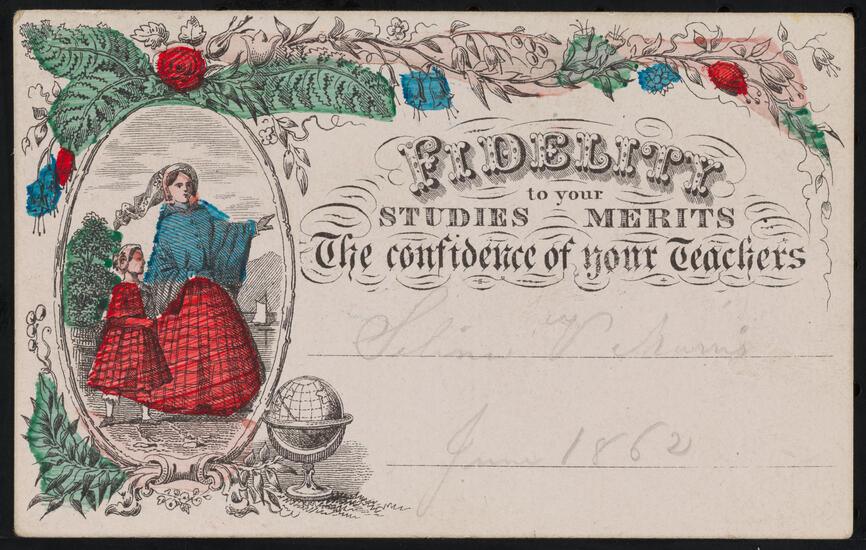 FIDELITY
to your
STUDIES MERITS
The confidence of your Teachers
June 1862